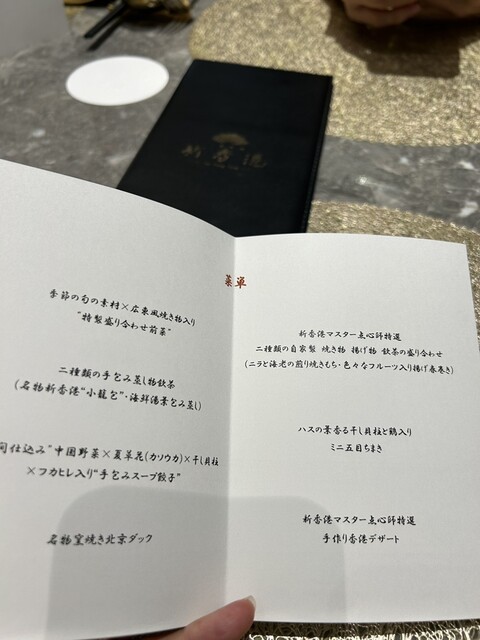 新香港
菜單
季節の旬の素材×広東風焼き物入り
"特製盛り合わせ前菜"
二種類の手包み蒸し物飲茶
(名物新香港"小籠包"・海鮮湯葉包み蒸し)
旬仕込み"中国野菜×夏草花(カソウカ)×干し貝柱
×フカヒレ入り"手包みスープ餃子"
名物窯焼き北京ダック
新香港マスター点心師特選
二種類の自家製 焼き物 揚げ物 飲茶の盛り合わせ
(ニラと海老の煎り焼きもち・色々なフルーツ入り揚げ春巻き)
ハスの葉香る干し貝柱と鶏入り
ミニ五目ちまき
新香港マスター点心師特選
手作り香港デザート